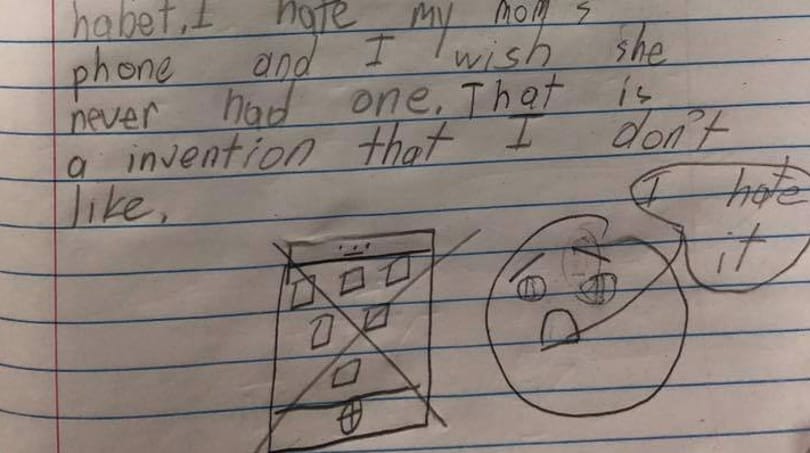 habet, I hate my mom's
phone and I wish she
never had one. That is
a invention that I don't
like.
I hate
it